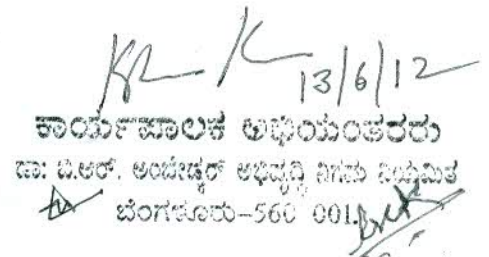 13/6/12
ಕಾರ್ಯಪಾಲಕ ಅಭಿಯಂತರರು
ಡಾ: ಬಿ.ಆರ್. ಅಂಬೇಡ್ಕರ್ ಅಭಿವೃದ್ಧಿ ನಿಗಮ ನಿಯಮಿತ
ಬೆಂಗಳೂರು-560 001.